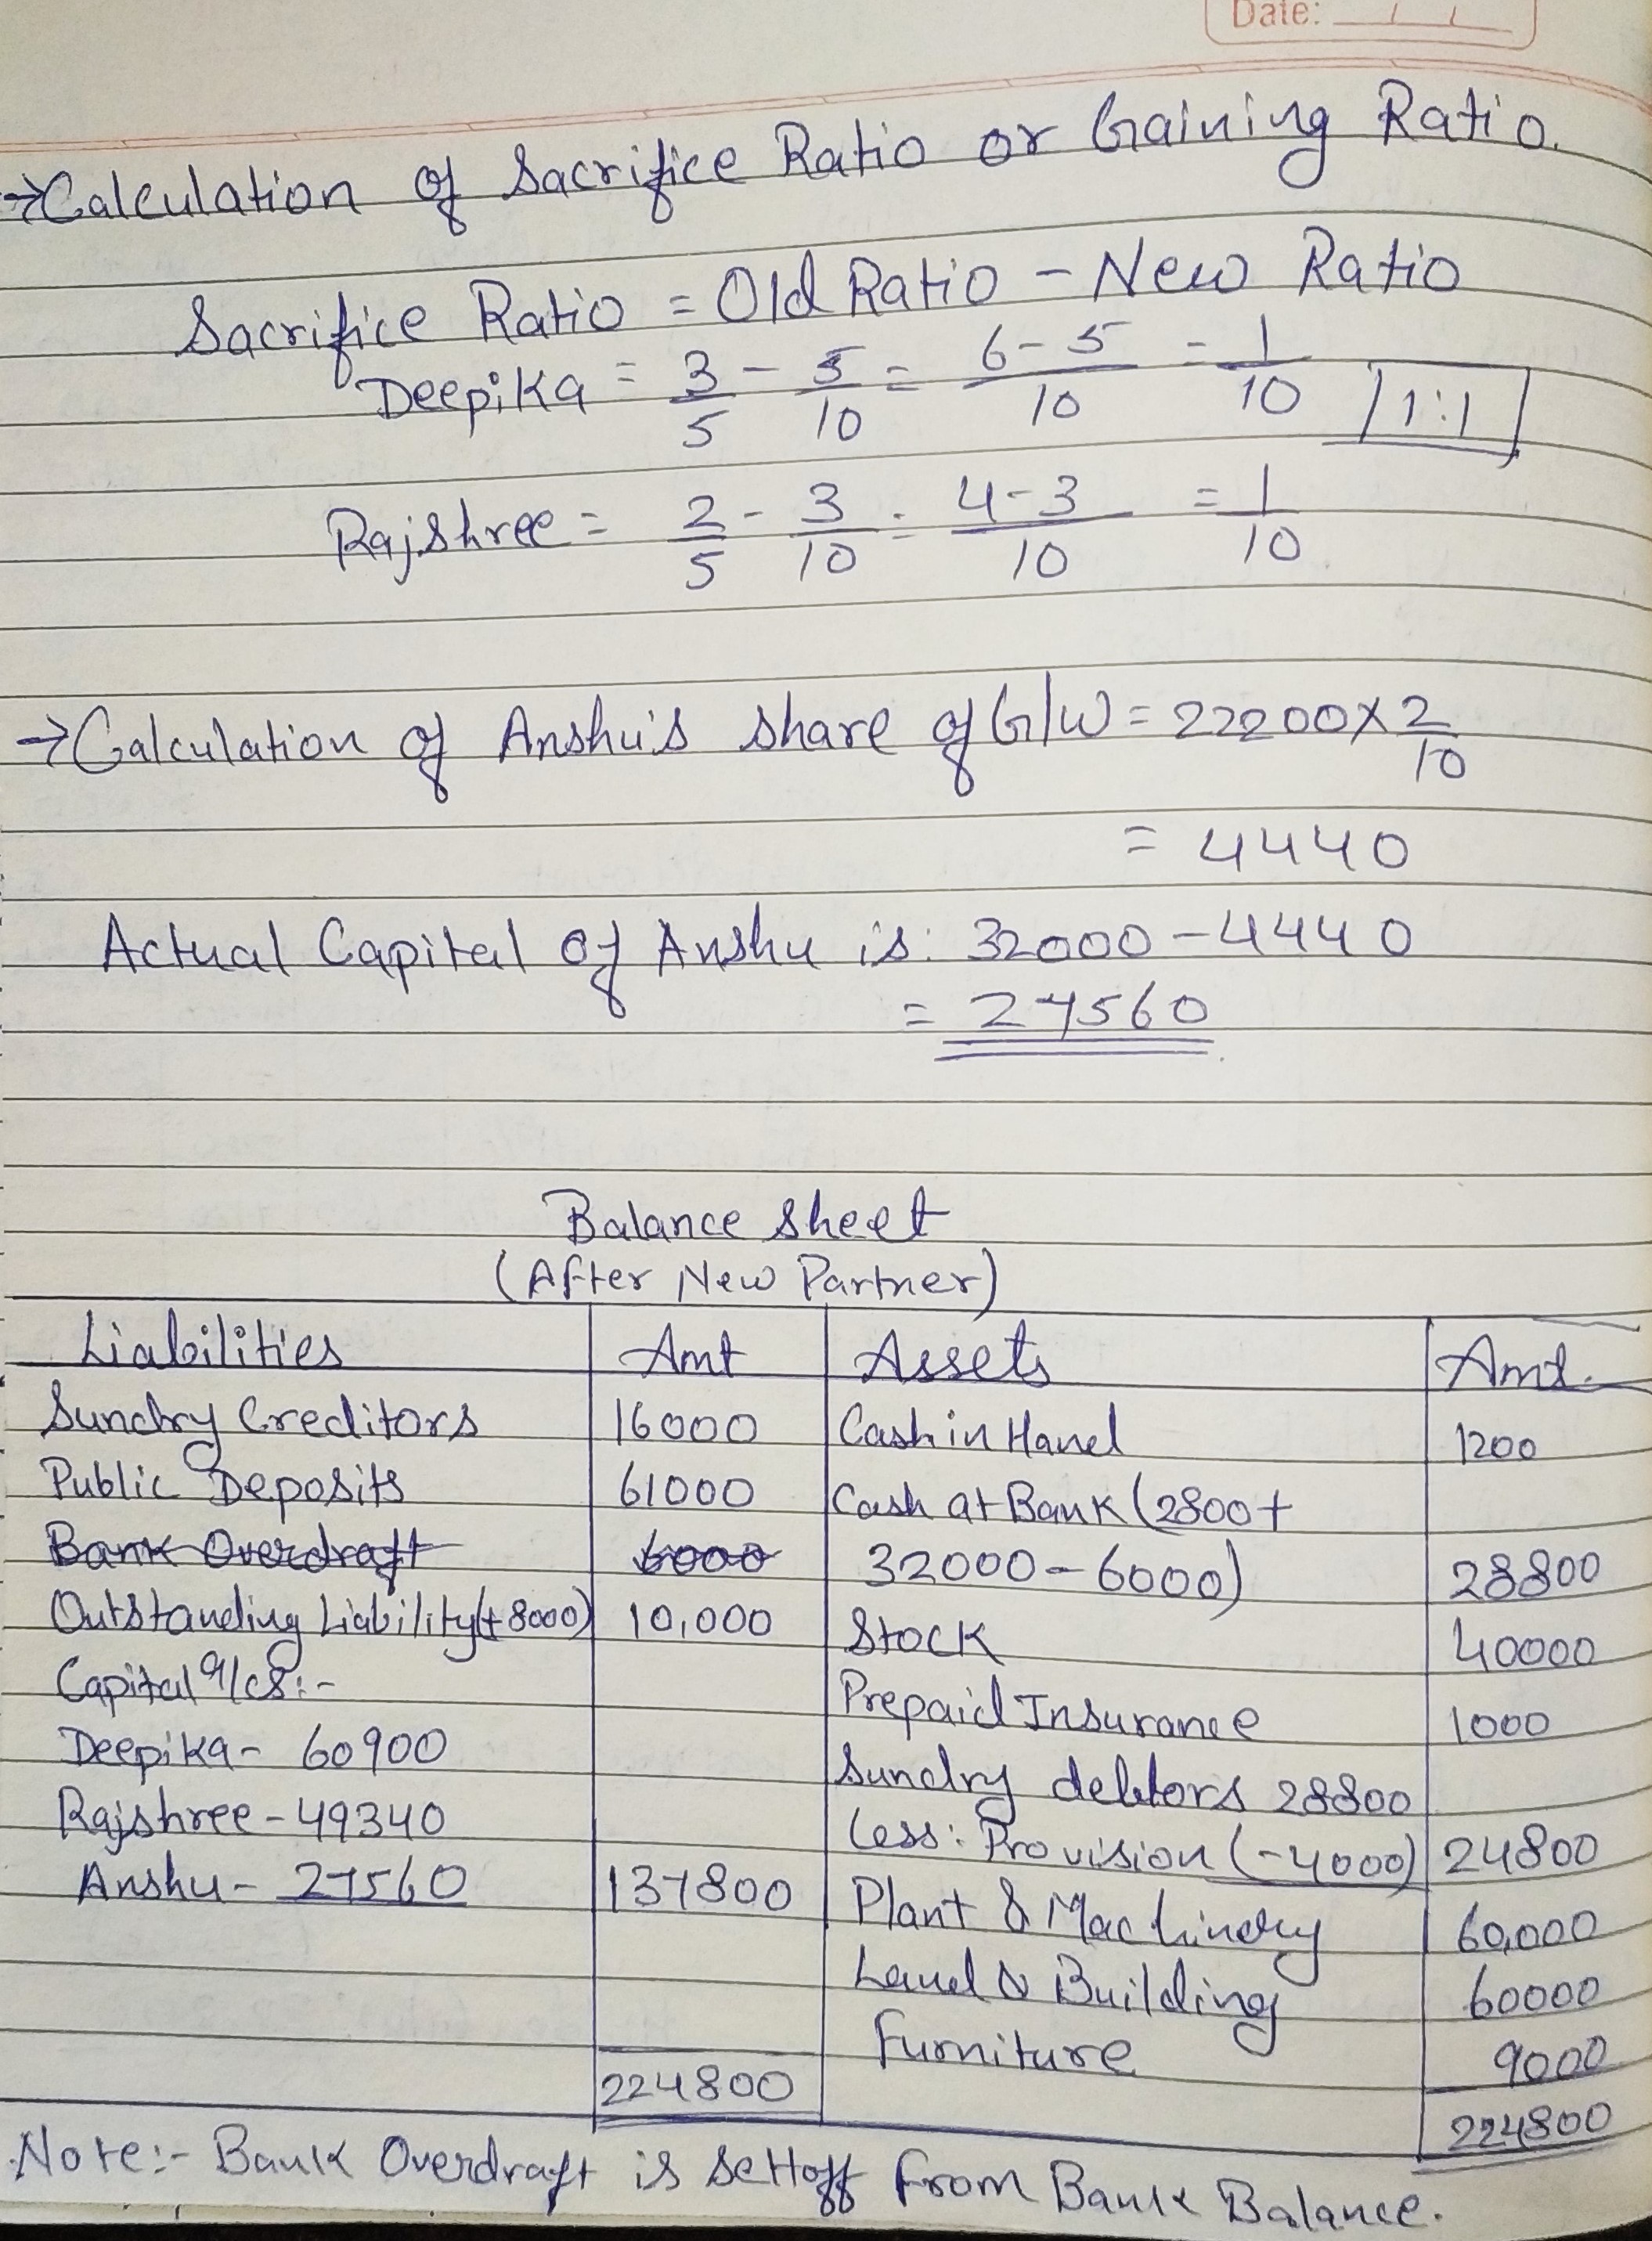 Date: / /
→Calculation of Sacrifice Ratio or Gaining Ratio.
Sacrifice Ratio = Old Ratio - New Ratio
Deepika = 3/5 - 5/10 = 6-5/10 = 1/10 1:1
Rajshree = 2/5 - 3/10 = 4-3/10 = 1/10
→Calculation of Anshu's share of G/W = 22200 x 2/10
= 4440
Actual Capital of Anshu is: 32000 - 4440
= 27560
Balance Sheet
(After New Partner)
Liabilities Amt Assets Amt.
Sundry Creditors 16000 Cash in Hand 1200
Public Deposits 61000 Cash at Bank (2800+
Bank Overdraft 6000 32000-6000) 28800
Outstanding Liability(+8000) 10,000 Stock 40000
Capital a/cs:- Prepaid Insurance 1000
Deepika- 60900 Sundry debtors 28800
Rajshree-49340 Less: Provision (-4000) 24800
Anshu- 27560 137800 Plant & Machinery 60,000
Land & Building 60000
Furniture 9000
224800 224800
Note:- Bank Overdraft is settoff from Bank Balance.